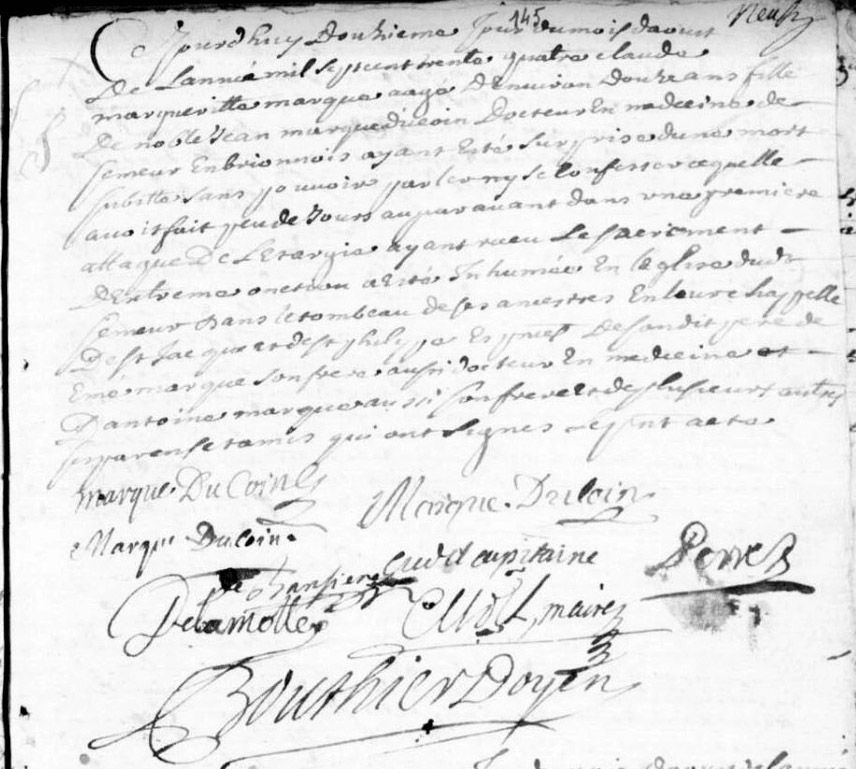 145 neuf
Ce jourd'huy douzieme jour du mois d'aoust
De Lanneé mil sept cent trente quatre claude
margueritte marque aageé D'Environ Douze ans fille
De noble Jean marque ducoin Docteur En medecine de
semeur En brionnois ayant Esté surprise d'une mort
subitte sans pouvoir parler ny se Confesser ce quelle
avoit fait peu de Jours auparavant dans une premiere
attaque De Letargie ayant receu Le sacrement
D'Extreme onction a Esté Inhumeé En leglise dudt
semeur dans le tombeau de ses ancestres En leur chappelle
De st Jacque et de st philippe Es pnces De son dit pere de
Emé marque son frere aussi docteur En medecine et
D'antoine marque aussi son frere et de plusieurs autres
ses parens et amis qui ont signes le pnt acte
marque Du Coin
Marque Ducoin
Marque Ducoin
capitaine
Perret
Delamotte
maire
Bouthier Doyen